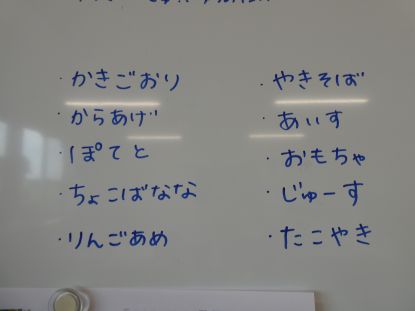 ・かきごおり
・からあげ
・ぽてと
・ちょこばなな
・りんごあめ
・やきそば
・あいす
・おもちゃ
・じゅーす
・たこやき